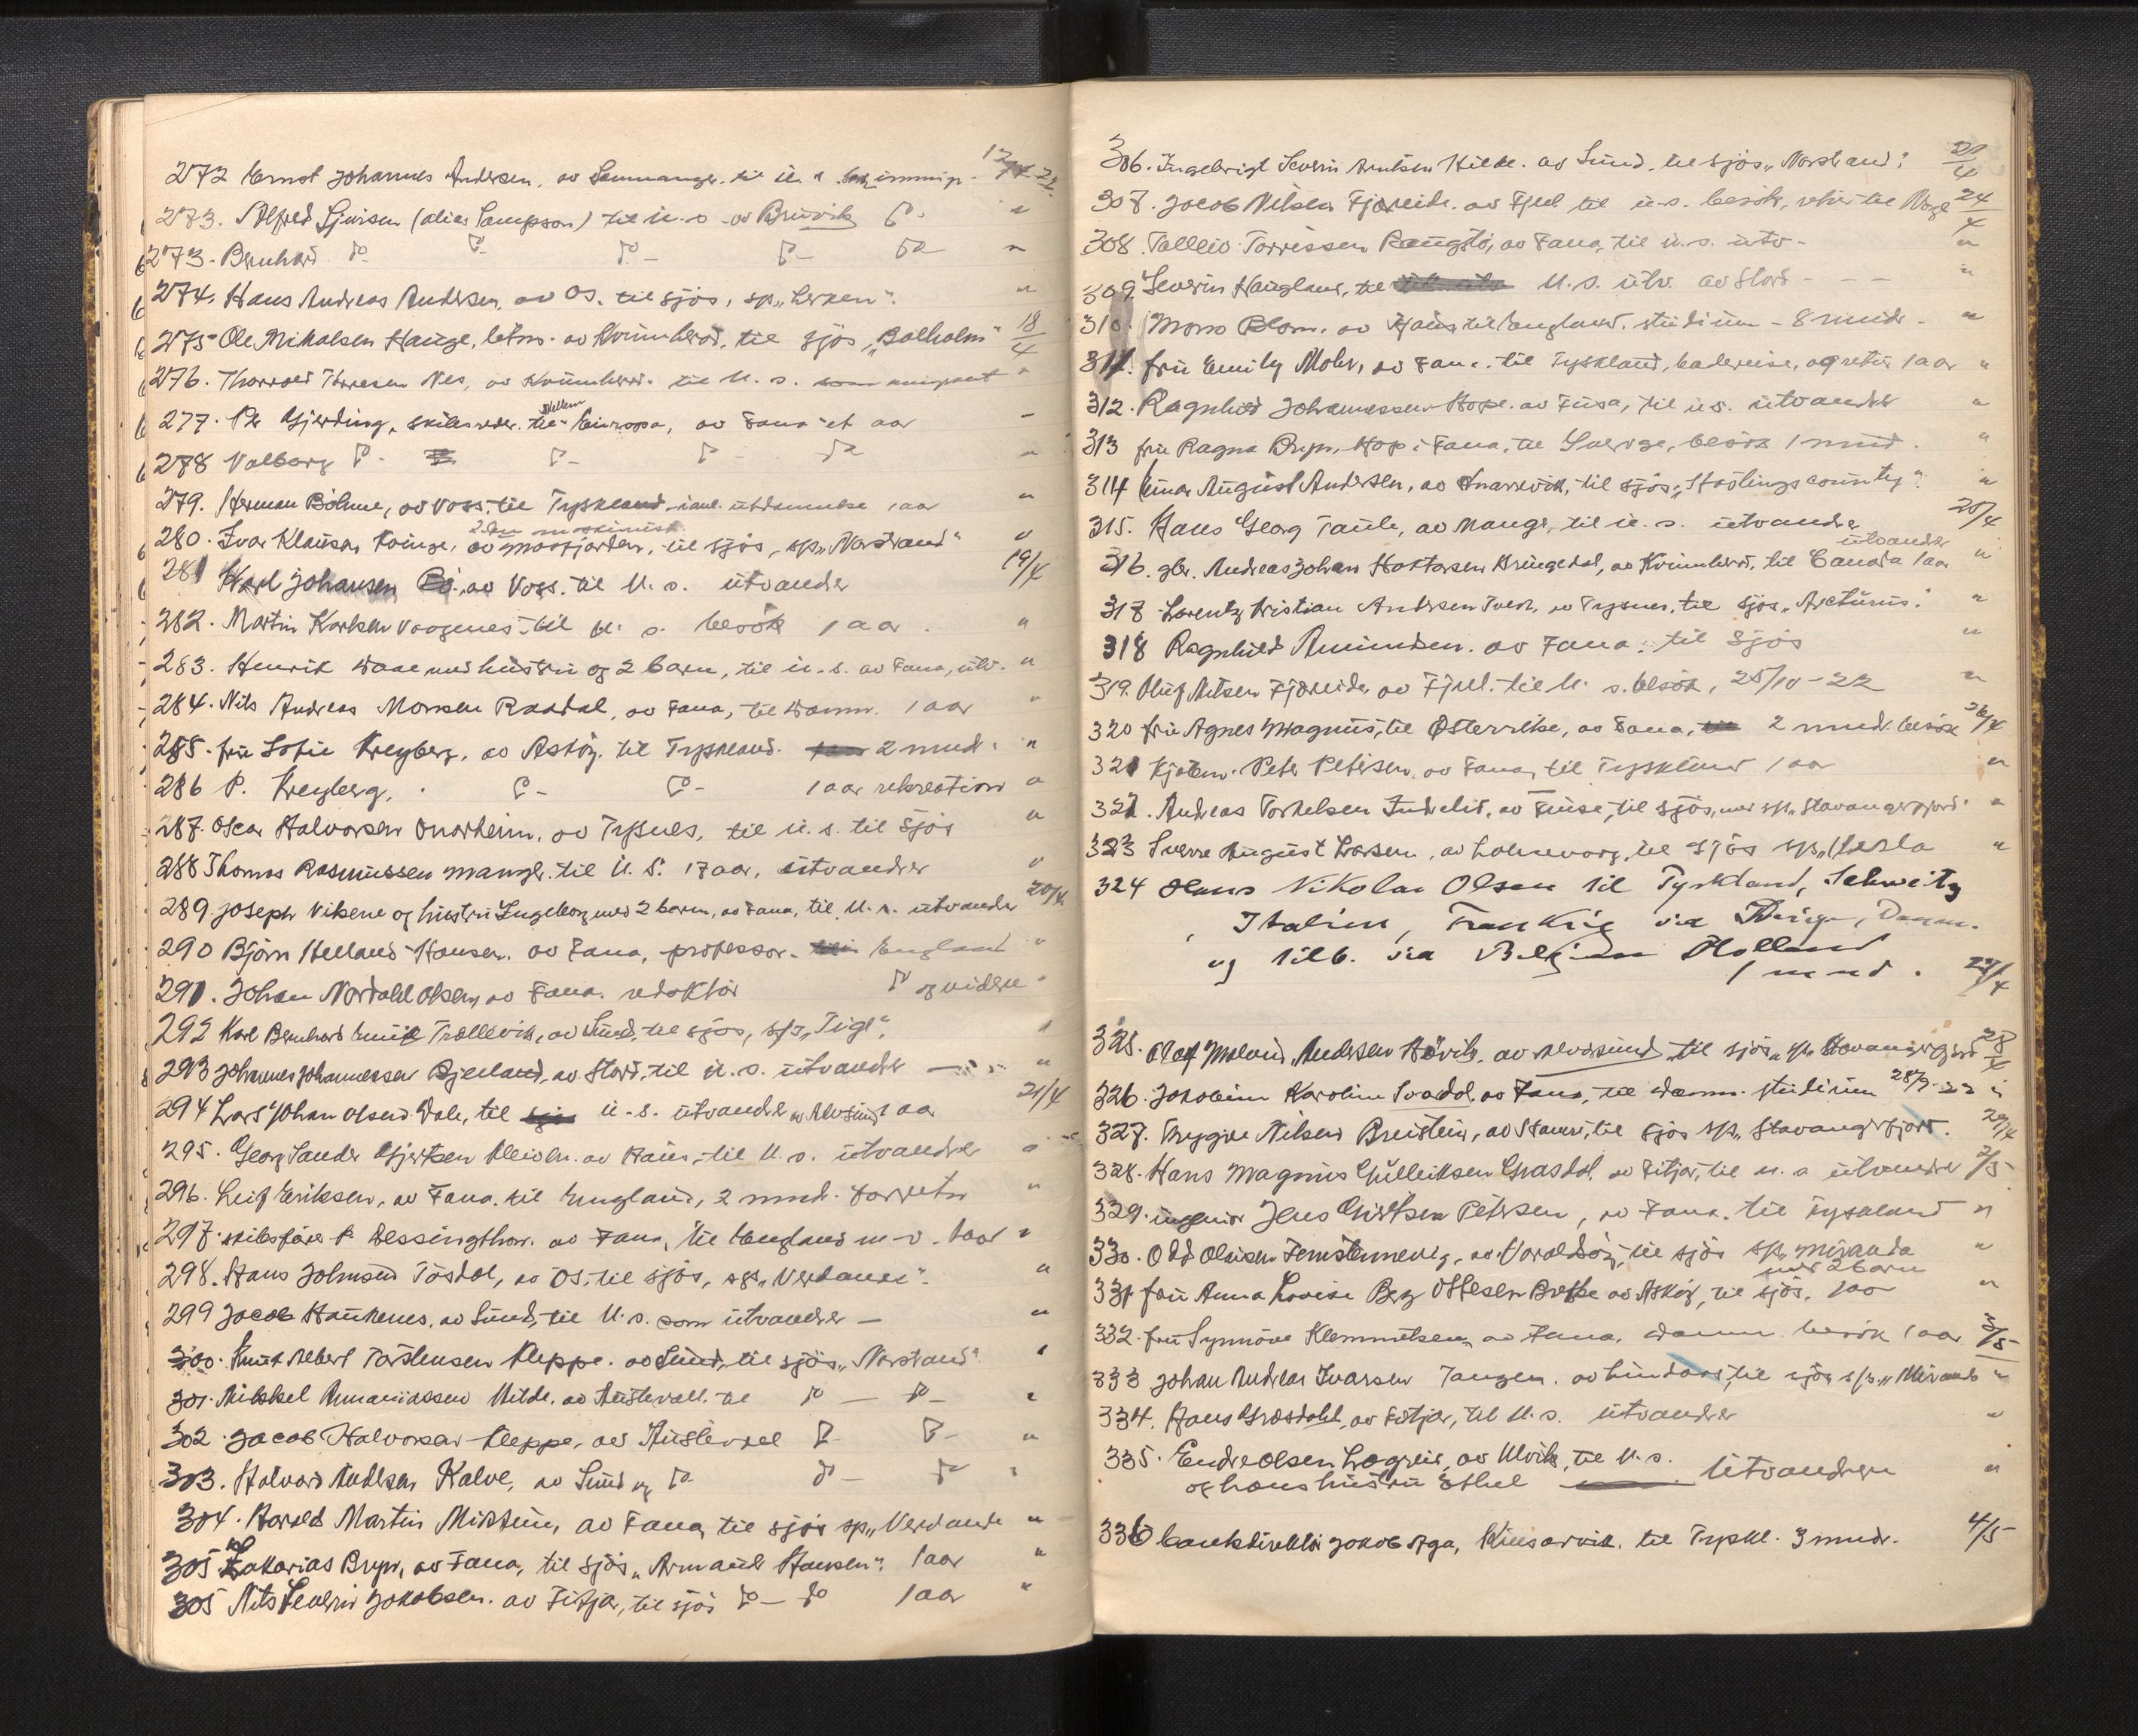 272 Ernst Johannes Andersen. av Samnanger. til U. s. immigr. 17/4 22
273. Alfred Sjursen (alias Sampson) til U.s. av Bruvik do "
273. Bernhard do do do - do - do "
274. Hans Andreas Andersen, av Os. til sjös, sp. „Lerken". "
275 Ole Mikalsen Hauge, av Kvinnherad, til sjös „Balholm" 18/4
276. Nes, av Kvinnherad. til U. s. "
277. Per Gjerding, skibsreder. til Mellem Europa, av Fana et aar "
278 Valborg do - do - do - do "
279. Herman Böhme, av Voss, til Tyskland utdannelse 1 aar "
280. Ivar Klausen av Mosfjorden, 2den maskinist til sjös, sp. „Norstrand" "
281 Karl Johansen av Voss. til U. s. utvandrer 19/4
282. Martin Karlsen til U. s. besök 1 aar. "
283. Henrik med hustru og 2 barn, til U. s. av Fana, utv. "
284. Nils Andreas Monsen Raadal, av Fana, til Danm. 1 aar "
285. fru Sofie Kreyberg, av Asköy, til Tyskland. 2 mndr. "
286 P. Kreyberg, do - do - 1 aar rekreation "
287. Oscar Halvorsen Onarheim, av Tysnes, til U. s. til sjös "
288 Thomas Rasmussen Manger. til U. S. 1 aar, utvandrer "
289 Joseph Viksene og hustru Ingeborg med 2 barn, av Fana, til U. s. utvandrer 20/4
290 Björn Helland-Hansen. av Fana, professor. England "
291. Johan Nordahl Olsen, av Fana. redaktör do og videre "
292 Karl Bernhard Trællevik, av Sund, til sjös, s/s „Tiger".
293 Johannes Johannessen Bjelland, av Stord, til U. s. utvandrer "
294 Lars Johan Olsen Dale, til U. s. utvandrer av Alversund 1 aar 21/4
295. Georg Sander Gjertsen av Haus, til U. s. utvandrer "
296. Leif Eriksen, av Fana. til England, 2 mnd. "
297. skibsförer P. Dessingthon. av Fana, til England m. v. 1 aar "
298. Hans Johnsen Tösdal, av Os, til sjös, sp. „Verdande". "
299 Jacob Haukenes, av Sund, til U. s. som utvandrer - "
300. Knut Albert Torstensen Kleppe. av Sund, til sjös, „Norstrand" "
301. Mikkel Ananiassen Hilde. av Austevoll. til do - do - "
302. Jacob Halvorsen Kleppe, av Austevoll do do - "
303. Halvard Andersen Kalve, av Sund og do do - do "
304. Harald Martin Midttun, av Fana, til sjös sp. „Verdande "
305 Zakarias Bryn, av Fana, til sjös „Armauer Hansen". 1 aar "
305 Nils Severin Jakobsen. av Fitjar, til sjös do - do 1 aar "
306. Ingebrigt Severin Hilde. av Sund. til sjös „Norstrand". 21/4
307. Jacob Nilsen Fjæreide. av Fjell til U. s. besök, retur til Norge 24/4
308. Talleiv Torrissen av Fana, til U. s. utv. "
309. Severin Haugland, til U. s. utv. av Stord - - - "
310. Mons Blom. av Haus til England. studium - 8 mndr. "
311. fru Emily Mohr, av Fana. til Tyskland, badereise, og retur 1 aar "
312. Ragnhild Johannessen Hope. av Fusa, til U.s. utvandrer "
313 fru Ragna Bryn, Hop i Fana, til Sverige, besök 1 mnd. "
314 Einar August Andersen, av Knarrevik, til sjös, "
315. Hans Georg Taule, av Manger, til U. s. utvandrer 25/4
316. gbr. Andreas Johan av Kvinnherad, til Canada utvandrer 1 aar "
317 Lorentz Kristian Andersen av Tysnes, til sjös „Arcturus". "
318 Ragnhild Amundsen. av Fana. til sjös "
319. Oluf Nilsen Fjæreide, av Fjell. til U. s. besök, 25/10-22 "
320 fru Agnes Magnus, til Österrike, av Fana, 2 mndr besök 26/4
321 Kjöbm. Peter Petersen. av Fana, til Tyskland 1 aar "
322. Andreas Torkelsen av Fuse, til sjös, med s/s „Stavangerfjord" "
323 Sverre August Larsen, av Laksevaag, til sjös sp. „Hesla "
324 Hans Nikolai Olsen til Tyskland, Schweitz
Italien, Frankrig via Sverige, Danm.
og tilb. via Belgien Holland
1 mnd. 27/4
325. Olaf Andersen av Alversund, til sjös, sp. Stavangerfjord 28/4
326. Jakobine Karoline av Fana, til Danm. studium 28/9-22 "
327. Trygve Nilsen Breistein, av Hamre, til sjös sp. Stavangerfjord. 29/4
328. Hans Magnus Gulleiksen Grasdal. av Fitjar, til U. s utvandrer 2/5
329. ingeniör Jens Petersen, av Fana. til Tyskland "
330. Odd Olaisen av Varaldsöy, til sjös sp. „Miranda "
331 fru Anna Lovise Berg Ottesen av Asköy, til sjös. med 2 barn 1 aar "
332. fru Synnöve Klemmetsen, av Fana, Danm. besök 1 aar 3/5
333 Johan Andreas Ivarsen Tangen. av Lindaas, til sjös s/s „Miranda "
334. Hans Grosdahl, av Fitjar, til U. s. utvandrer "
335. Endre Olsen Lægreid, av Ulvik, til U. s.
og hans hustru Ethel utvandrere "
336 bankdirektör Jakob Aga, Kinsarvik. til Tyskl. 3 mndr. 4/5